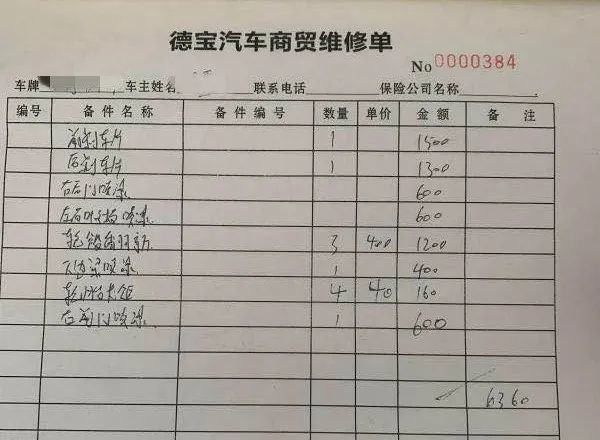 德宝汽车商贸维修单
No 0000384
车牌 车主姓名 联系电话 保险公司名称
编号 备件名称 备件编号 数量 单价 金额 备注
前刹车片 1 1500
后刹车片 1 1300
右后门喷漆 600
左后叶子板喷漆 600
轮毂翻新 3 400 1200
边梁喷漆 1 400
轮 4 40 160
右前门喷漆 1 600
6360